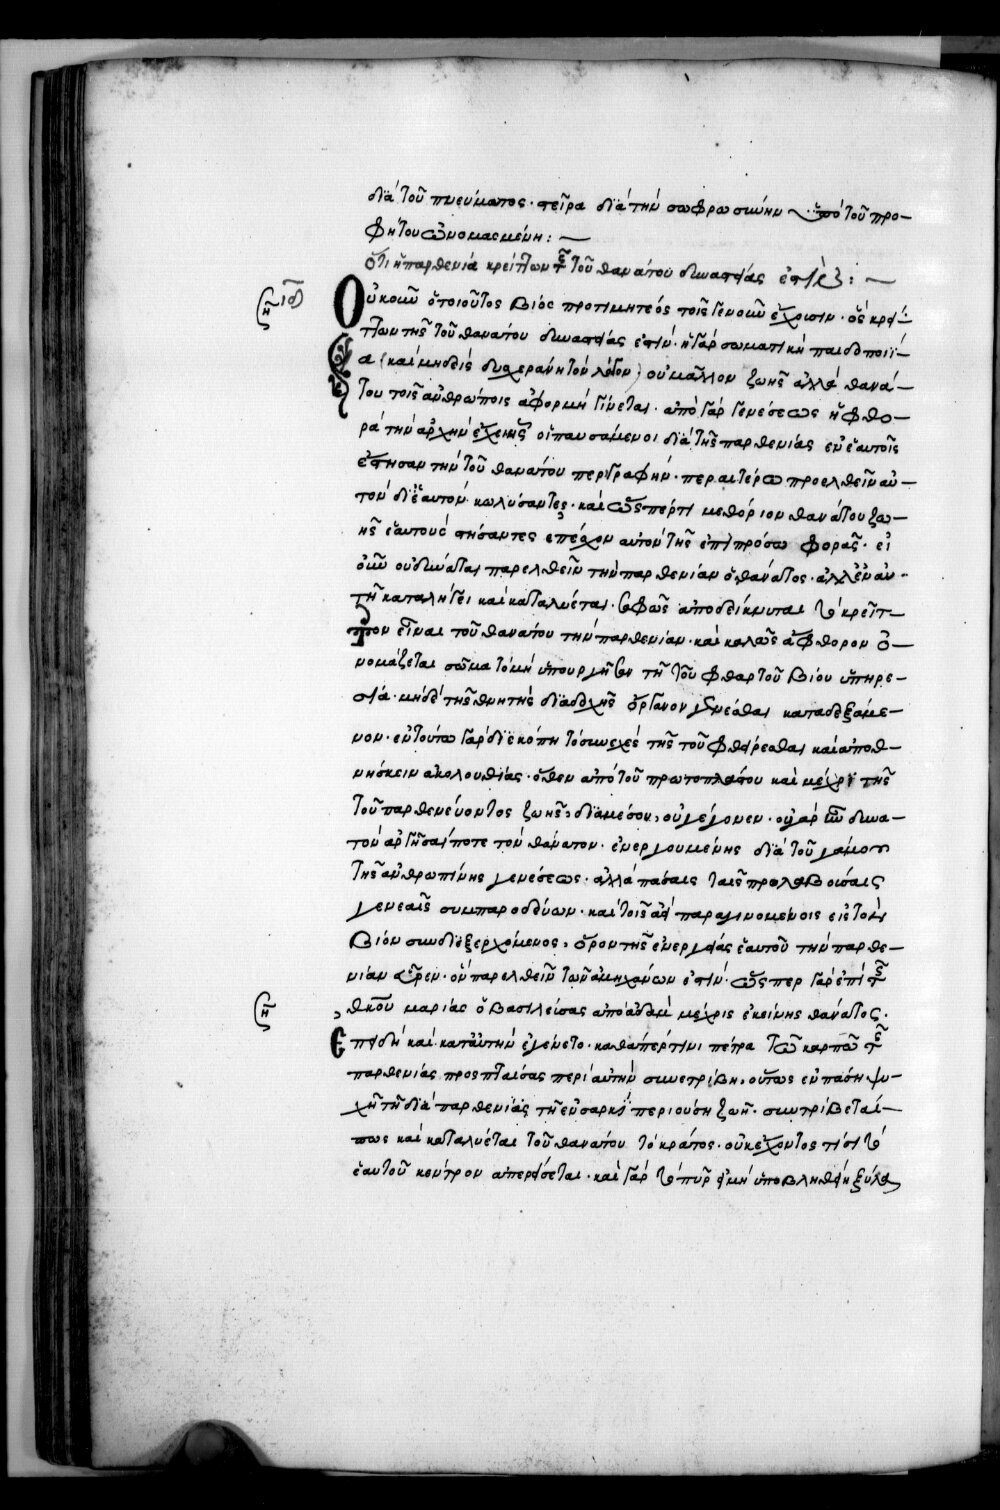 διὰ τοῦ πνεύματος· στεῖρα διὰ τὴν σωφροσύνην ὑπὸ τοῦ προ-
φήτου ὠνομασμένη:
Ὅτι ἡ παρθενία κρείττων τῆς τοῦ θανάτου δυναστείας ἐστὶ:
ιδ Οὐκοῦν ὁ τοιοῦτος βίος προτιμητέος τοῖς γε νοῦν ἔχουσιν· ὃς κρεί-
ττων τῆς τοῦ θανάτου δυναστείας ἐστίν· ἡ γὰρ σωματικὴ παιδοποιΐ-
α (καὶ μηδεὶς δυσχεράνῃ τὸν λόγον) οὐ μᾶλλον ζωῆς ἀλλὰ θανά-
του τοῖς ἀνθρώποις ἀφορμὴ γίνεται· ἀπὸ γὰρ γενέσεως ἡ φθο-
ρὰ τὴν ἀρχὴν ἔχει ἧς οἱ παυσάμενοι διὰ τῆς παρθενίας ἐν ἑαυτοῖς
ἔστησαν τὴν τοῦ θανάτου περιγραφήν· περαιτέρω προελθεῖν αὐ-
τὸν δι' ἑαυτῶν κωλύσαντες· καὶ ὥσπερ τι μεθόριον θανάτου ζω-
ῆς ἑαυτοὺς στήσαντες ἐπέσχον αὐτὸν τῆς ἐπὶ πρόσω φορᾶς· εἰ
οὖν οὐ δύναται παρελθεῖν τὴν παρθενίαν ὁ θάνατος· ἀλλ' ἐν αὐ-
τῇ καταλήγει καὶ καταλύεται· σαφῶς ἀποδείκνυται τὸ κρεῖτ-
τον εἶναι τοῦ θανάτου τὴν παρθενίαν· καὶ καλῶς ἄφθορον ὀ-
νομάζεται σῶμα τὸ μὴ ὑπουργῆσαν τῇ τοῦ φθαρτοῦ βίου ὑπηρε-
σίᾳ· μηδὲ τῆς θνητῆς διαδοχῆς ὄργανον γενέσθαι καταδεξάμε-
νον· ἐν τούτῳ γὰρ διεκόπη τὸ συνεχὲς τῆς τοῦ φθείρεσθαι καὶ ἀποθ-
νήσκειν ἀκολουθίας· ὅπερ ἀπὸ τοῦ πρωτοπλάστου καὶ μέχρι τῆς
τοῦ παρθενεύοντος ζωῆς, διὰ μέσου, οὐ γέγονεν· οὐ γὰρ ἦν δυνα-
τὸν ἀργῆσαί ποτε τὸν θάνατον· ἐνεργουμένης διὰ τοῦ γάμου
τῆς ἀνθρωπίνης γενέσεως· ἀλλὰ πάσαις ταῖς προλαβούσαις
γενεαῖς συμπαροδεύων· καὶ τοῖς ἀεὶ παραγινομένοις εἰς τὸν
βίον συνδιεξερχόμενος, ὅρον τῆς ἐνεργείας ἑαυτοῦ τὴν παρθε-
νίαν εὗρεν· ὃν παρελθεῖν τῶν ἀμηχάνων ἐστίν· ὥσπερ γὰρ ἐπὶ τῆς
θκου μαρίας ὁ βασιλεύσας ἀπὸ ἀδὰμ μέχρις ἐκείνης θάνατος·
Ἐπειδὴ καὶ κατ' αὐτὴν ἐγένετο· καθάπερ τινὶ πέτρᾳ τῷ καρπῷ τῆς
παρθενίας προσπταίσας περὶ αὐτὴν συνετρίβη, οὕτως ἐν πάσῃ ψυ-
χῇ τῇ διὰ παρθενίας τῇ ἐν σαρκὶ περιούσῃ ζωῇ· συντρίβεταί
πως καὶ καταλύεται τοῦ θανάτου τὸ κράτος· οὐκ ἔχοντος τίσι τὸ
ἑαυτοῦ κέντρον ἀπερείσεται· καὶ γὰρ τὸ πῦρ εἰ μὴ ὑποβληθείη ξύλα